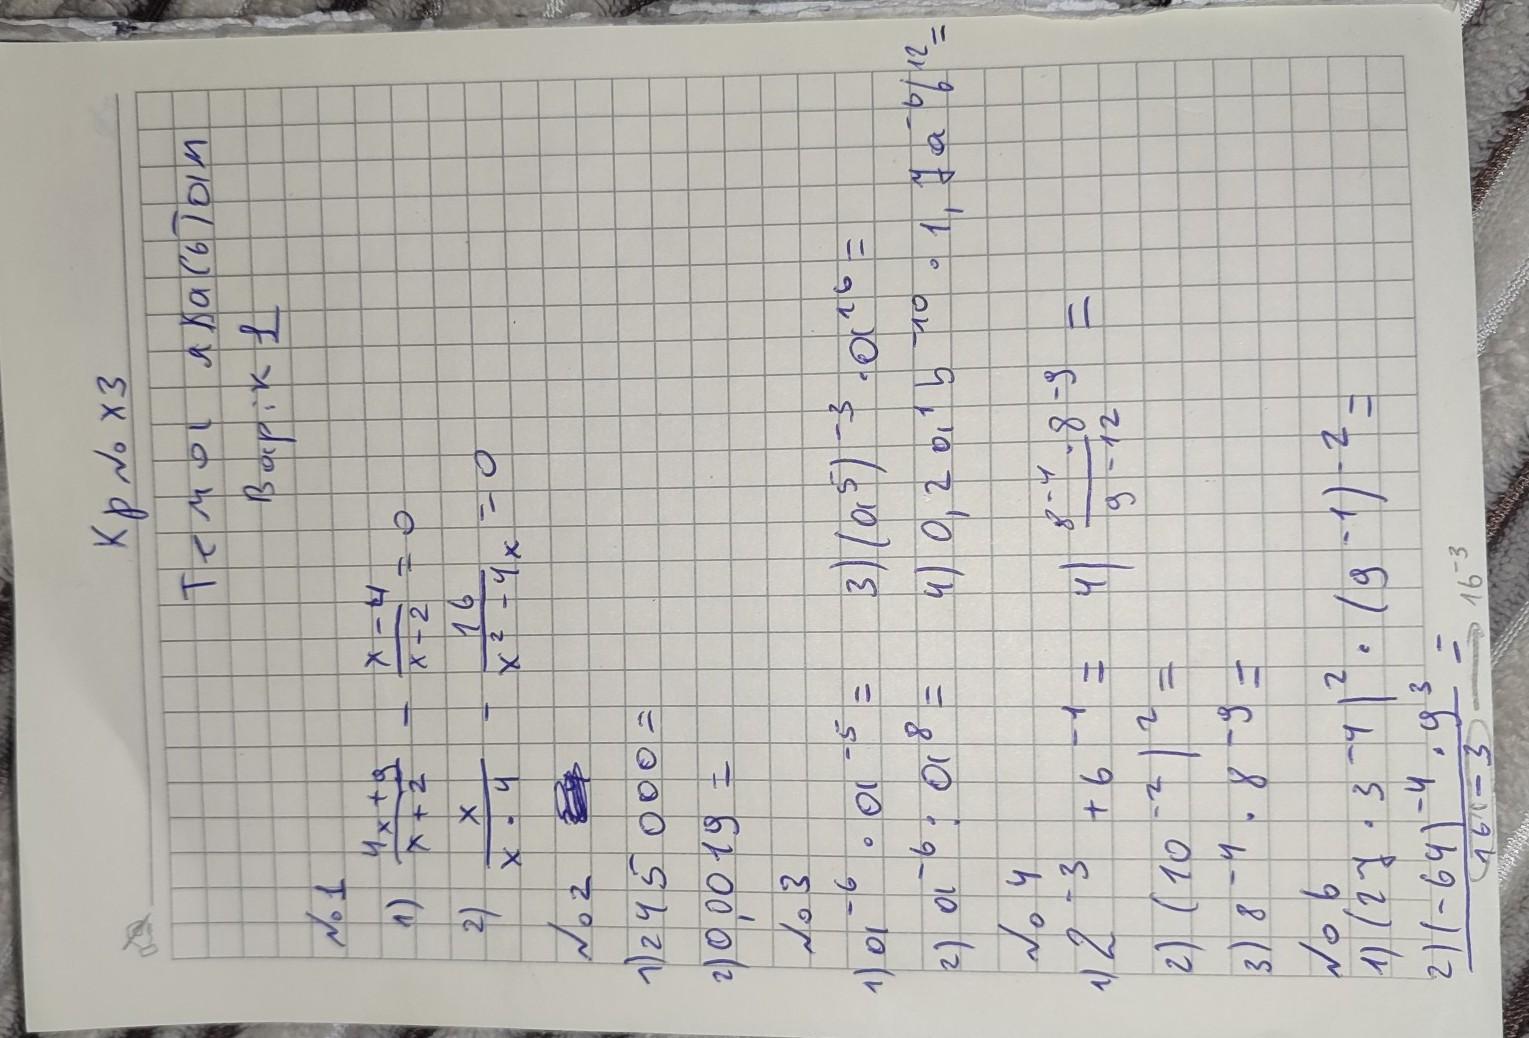 Кр № х3
Тема
Варік 1
№1
1) 4x+9/x+2 - x-4/x-2 = 0
2) x/x·4 - 16/x²-4x = 0
№2
1) 245 0000 =
2) 0,0019 =
№3
1) a⁻⁶ · a⁻⁵ =
2) a⁻⁶ · a⁸ =
3) (a⁵)⁻³ · a¹⁶ =
4) 0,2 a¹ b⁻¹⁰ · 1,7 a⁻⁶ b¹² =
№4
1) 2⁻³ + 6⁻¹ =
2) (10⁻²)² =
3) 8⁻⁴ · 8⁻⁹ =
4) 8⁻⁴ · 8⁻⁹/9⁻¹² =
№6
1) (27 · 3⁻⁴)² · (9⁻¹)⁻² =
2) (-64)⁻⁴ · 9³/16⁻³ =
16⁻³